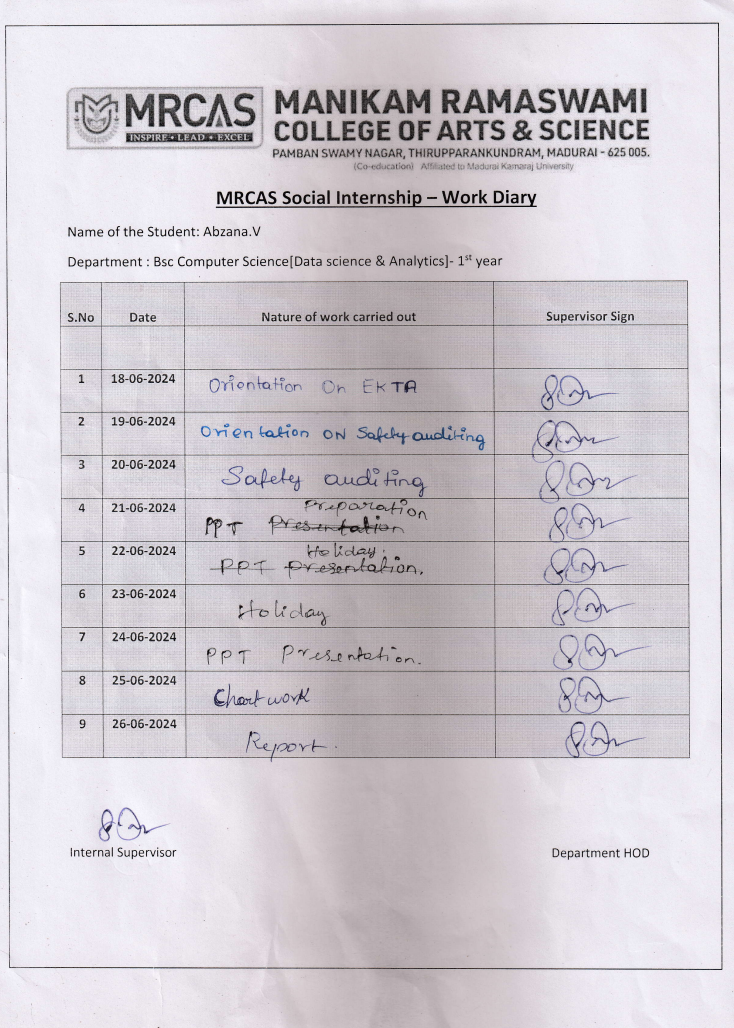 MRCAS
INSPIRE • LEAD • EXCEL
MANIKAM RAMASWAMI
COLLEGE OF ARTS & SCIENCE
PAMBAN SWAMY NAGAR, THIRUPPARANKUNDRAM, MADURAI - 625 005.
(Co-education) Affiliated to Madurai Kamaraj University
MRCAS Social Internship – Work Diary
Name of the Student: Abzana.V
Department : Bsc Computer Science[Data science & Analytics]- 1st year
S.No Date Nature of work carried out Supervisor Sign
1 18-06-2024 Orientation On EKTA
2 19-06-2024 Orientation ON Safety auditing
3 20-06-2024 Safety auditing
4 21-06-2024 PPT Presentation Preparation
5 22-06-2024 PPT Presentation. Holiday.
6 23-06-2024 Holiday
7 24-06-2024 PPT Presentation.
8 25-06-2024 Chart work
9 26-06-2024 Report.
Internal Supervisor Department HOD